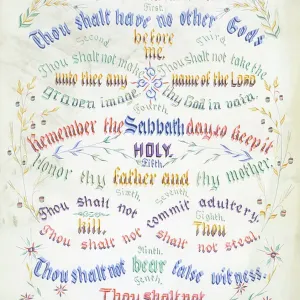 First.
Thou shalt have no other Gods
before
Second me. Third
Thou shalt not make Thou shalt not take the
unto thee any name of the LORD
graven image thy God in vain.
Fourth
Remember the Sabbath day to keep it
HOLY.
Fifth
Honor thy father and thy mother.
Sixth Seventh
Thou shalt not commit adultery.
kill. Eighth Thou
Thou shalt not shalt not steal.
Ninth
Thou shalt not bear false witness.
Tenth
Thou shalt not